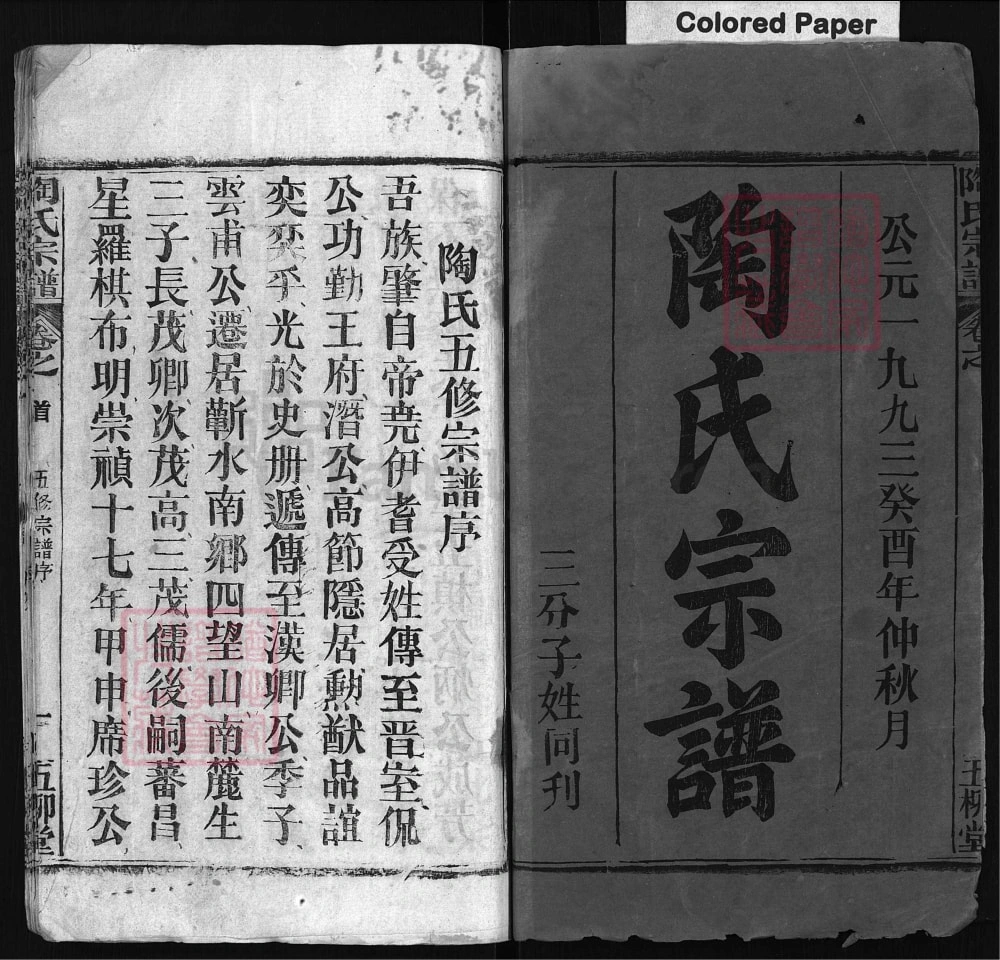 Colored Paper
陶氏宗譜
卷之
五柳堂
公元一九九三癸酉年仲秋月
陶氏宗譜
三分子姓同刊
陶氏五修宗譜序
吾族肇自帝堯伊耆受姓傳至晋室侃
公功勤王府潛公高節隱居勲猷品誼
奕奕乎光於史册遞傳至漢卿公季子
雲甫公遷居蘄水南鄉四望山南麓生
三子長茂卿次茂高三茂儒後嗣蕃昌
星羅棋布明崇禎十七年甲申席珍公
陶氏宗譜
卷之
首
五修宗譜序
一
五柳堂